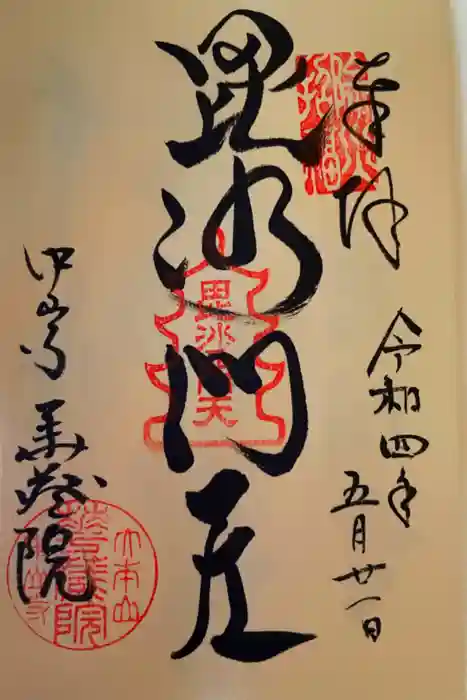 奉拝
令和四年
五月廿一日
毘沙門天
中山寺 華蔵院
毘沙門天
大本山
中山寺
華蔵院